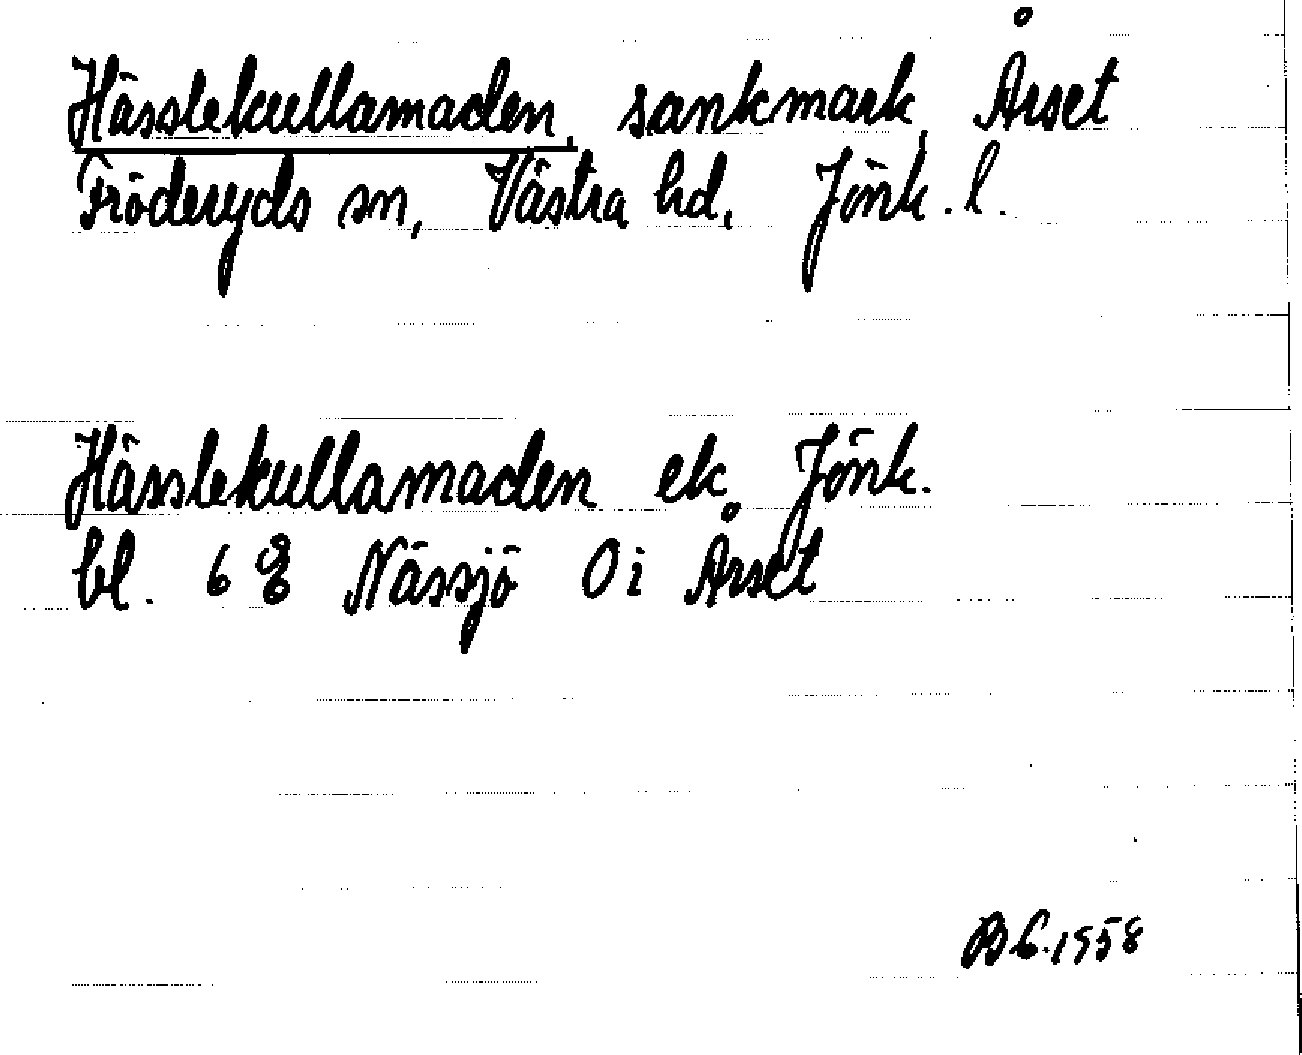 Hässlekullamaden, sankmark, Årset
Fröderyds sn, Västra hd, Jönk. l.
Hässlekullamaden ek. Jönk.
bl. 6 E Nässjö O i Årset
BE.1958